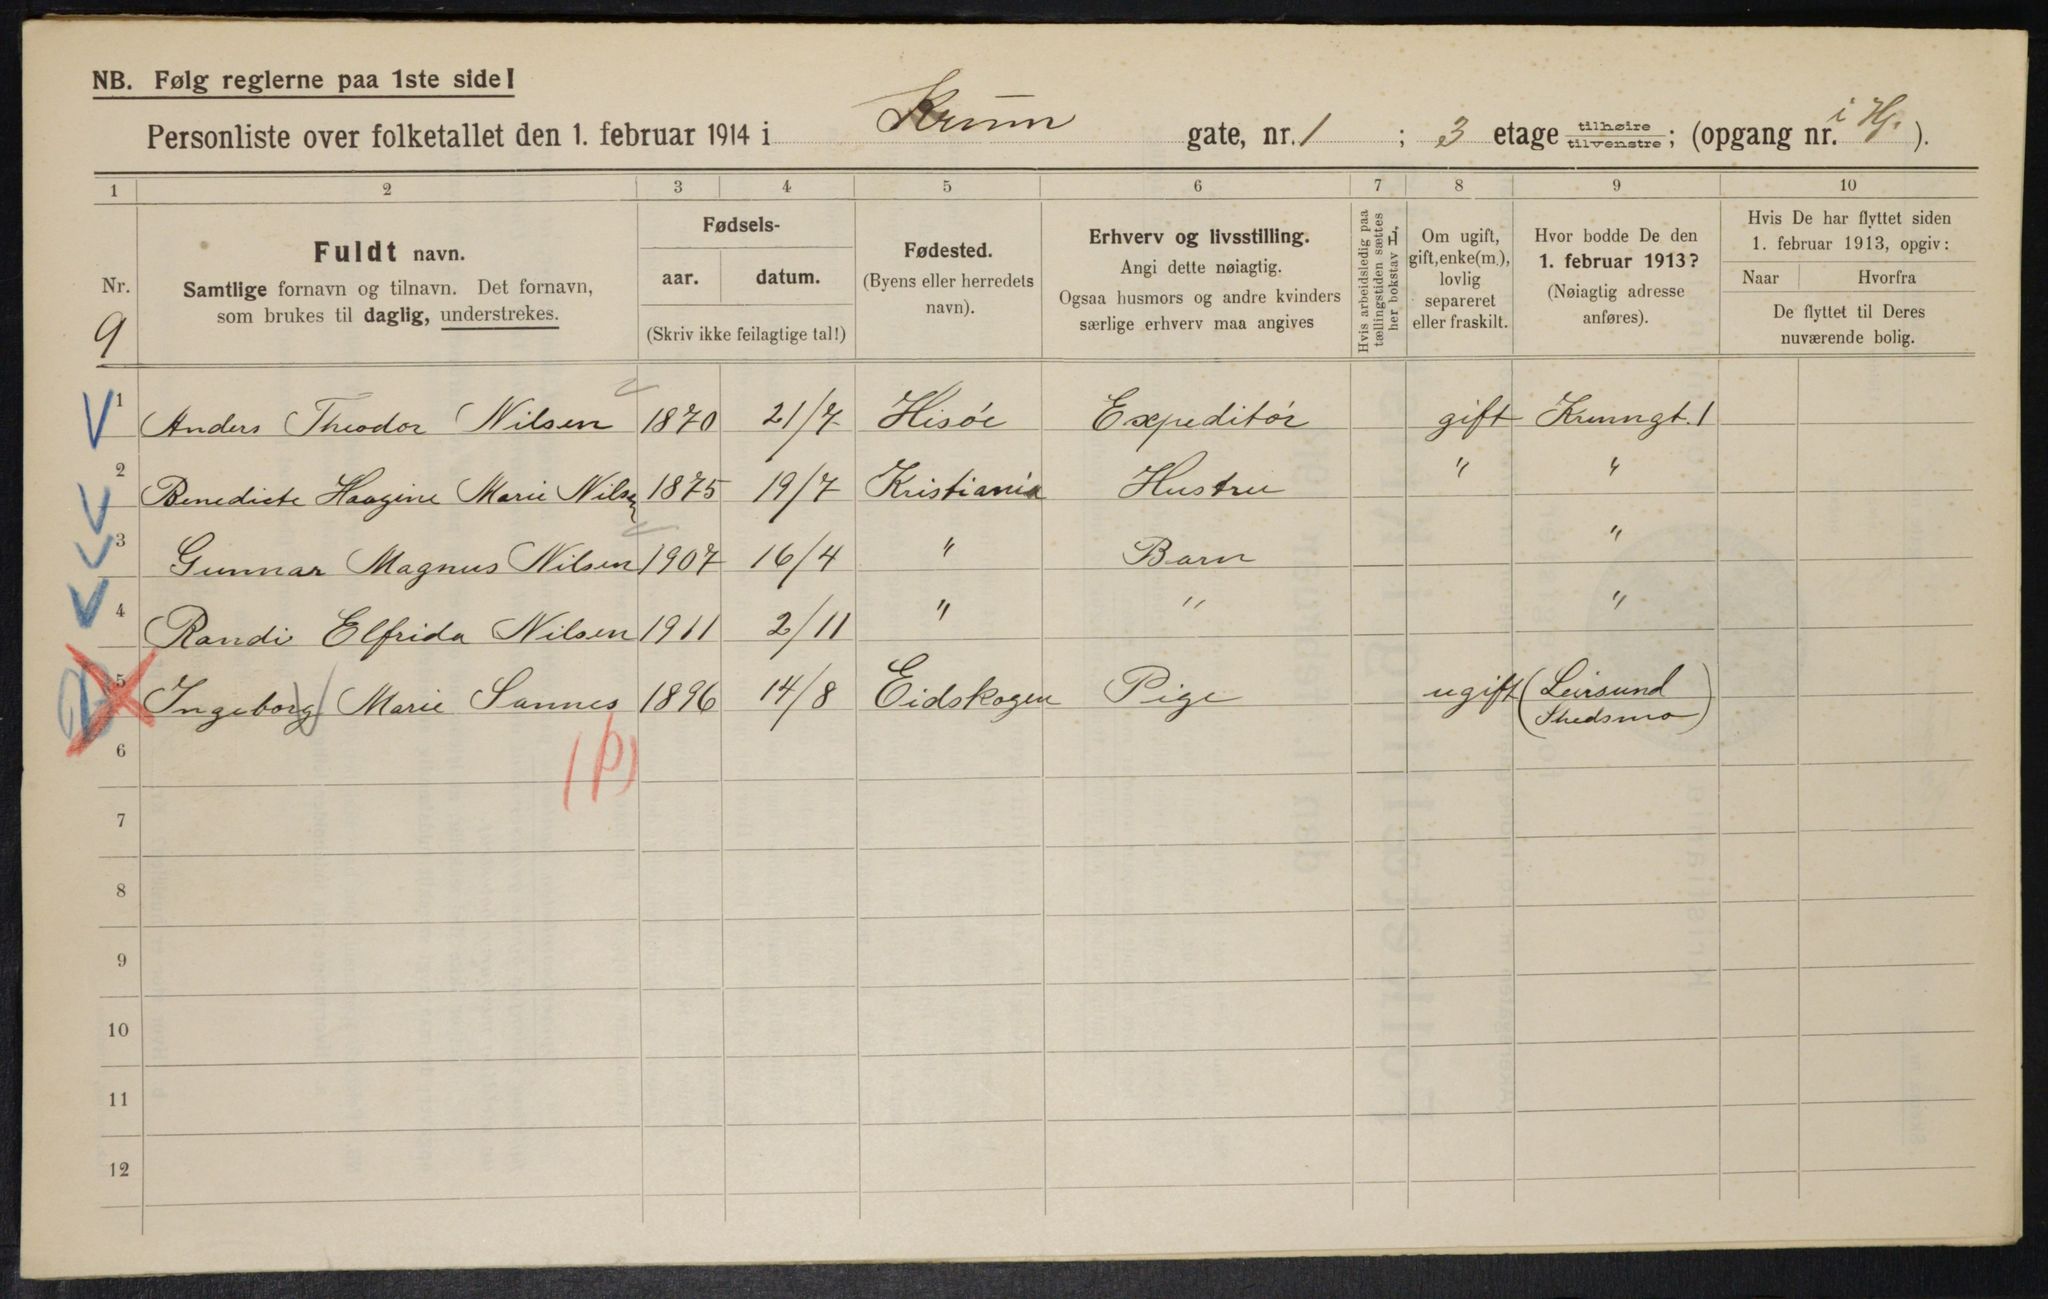 NB. Følg reglerne paa 1ste side!
Personliste over folketallet den 1. februar 1914 i Krum gate, nr. 1 ; 3 etage tilhøire tilvenstre ; (opgang nr. i Hj. ).
1 2 3 4 5 6 7 8 9 10
Nr.
9
Fuldt navn.
Samtlige fornavn og tilnavn. Det fornavn,
som brukes til daglig, understrekes.
Fødsels-
aar. datum.
(Skriv ikke feilagtige tal!)
Fødested.
(Byens eller herredets
navn).
Erhverv og livsstilling.
Angi dette nøiagtig.
Ogsaa husmors og andre kvinders
særlige erhverv maa angives
Hvis arbeidsledig paa
tællingstiden sættes
her bokstav L.
Om ugift,
gift, enke(m.),
lovlig
separeret
eller fraskilt.
Hvor bodde De den
1. februar 1913?
(Nøiagtig adresse
anføres).
Hvis De har flyttet siden
1. februar 1913, opgiv:
Naar Hvorfra
De flyttet til Deres
nuværende bolig.
1 Anders Theodor Nilsen 1870 21/7 Hisøe Expeditør gift Krumgt. 1
2 Benedicte Haagine Marie Nilsen 1875 19/7 Kristiania Hustru " "
3 Gunnar Magnus Nilsen 1907 16/4 " Barn "
4 Randi Elfrida Nilsen 1911 2/11 " " "
5 Ingeborg Marie Sannes 1896 14/8 Eidskogen Pige ugift (Leirsund
Skedsmo)
(p)
6
7
8
9
10
11
12